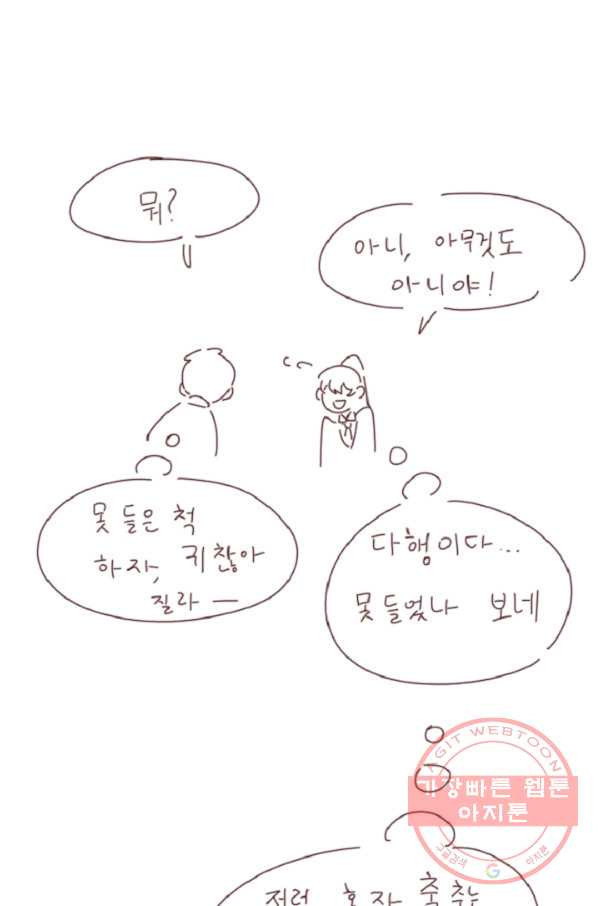 뭐?
아니, 아무것도
아니야!
못 들은 척
하자, 귀찮아
질라 —
다행이다...
못 들었나 보네
AGIT WEBTOON
가장빠른 웹툰
아지툰
구글검색
G
아지툰
저런 혼자 춤추는